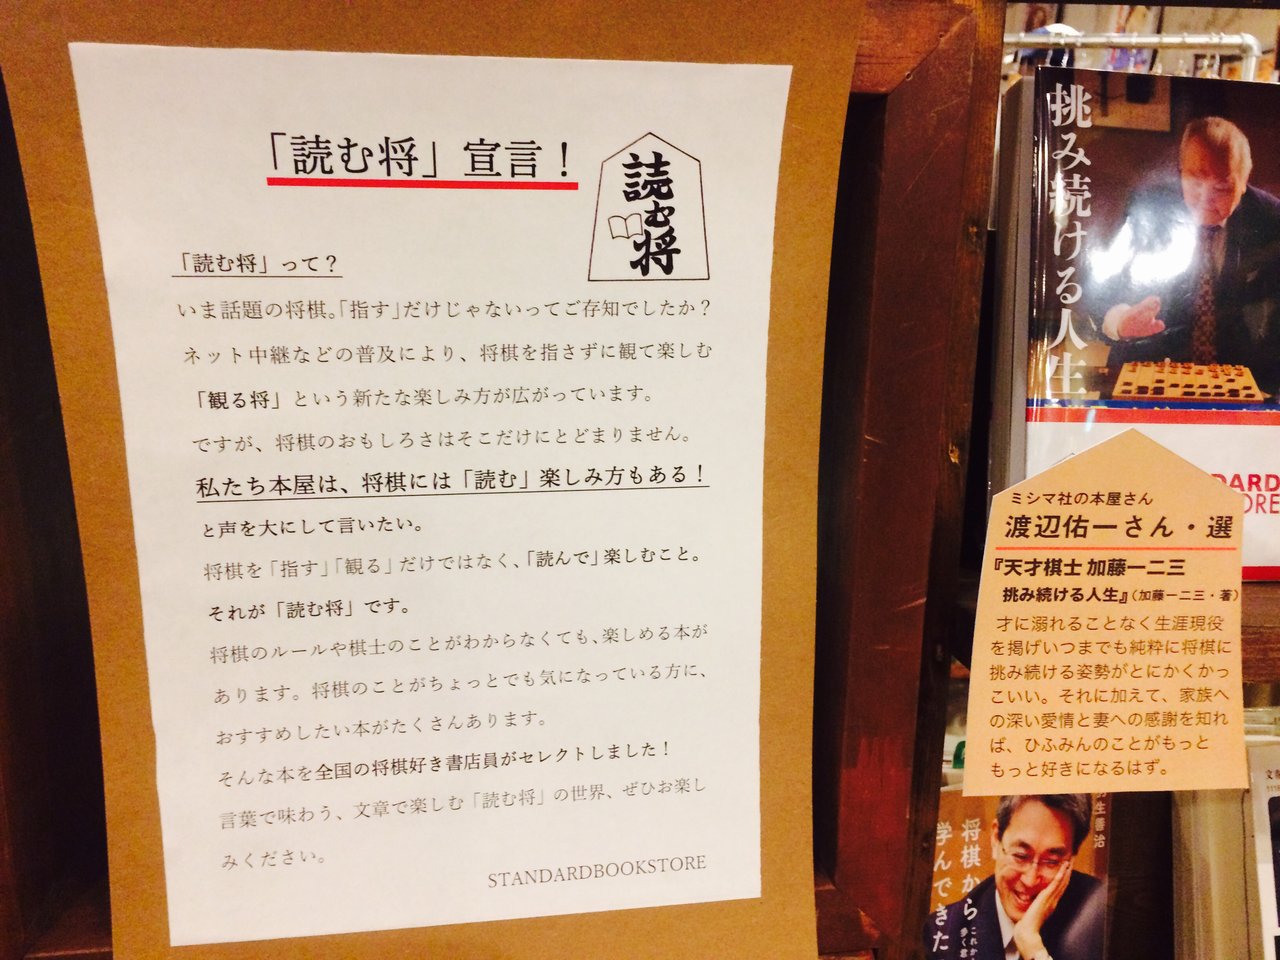 「読む将」宣言！
読む将
「読む将」って？
いま話題の将棋。「指す」だけじゃないってご存知でしたか？
ネット中継などの普及により、将棋を指さずに観て楽しむ
「観る将」という新たな楽しみ方が広がっています。
ですが、将棋のおもしろさはそこだけにとどまりません。
私たち本屋は、将棋には「読む」楽しみ方もある！
と声を大にして言いたい。
将棋を「指す」「観る」だけではなく、「読んで」楽しむこと。
それが「読む将」です。
将棋のルールや棋士のことがわからなくても、楽しめる本が
あります。将棋のことがちょっとでも気になっている方に、
おすすめしたい本がたくさんあります。
そんな本を全国の将棋好き書店員がセレクトしました！
言葉で味わう、文章で楽しむ「読む将」の世界、ぜひお楽し
みください。
STANDARDBOOKSTORE
挑み続ける人生
ミシマ社の本屋さん
渡辺佑一さん・選
『天才棋士 加藤一二三
挑み続ける人生』（加藤一二三・著）
才に溺れることなく生涯現役
を掲げいつまでも純粋に将棋に
挑み続ける姿勢がとにかくかっ
こいい。それに加えて、家族へ
の深い愛情と妻への感謝を知れ
ば、ひふみんのことがもっと
もっと好きになるはず。
将棋から
学んできた
生善治